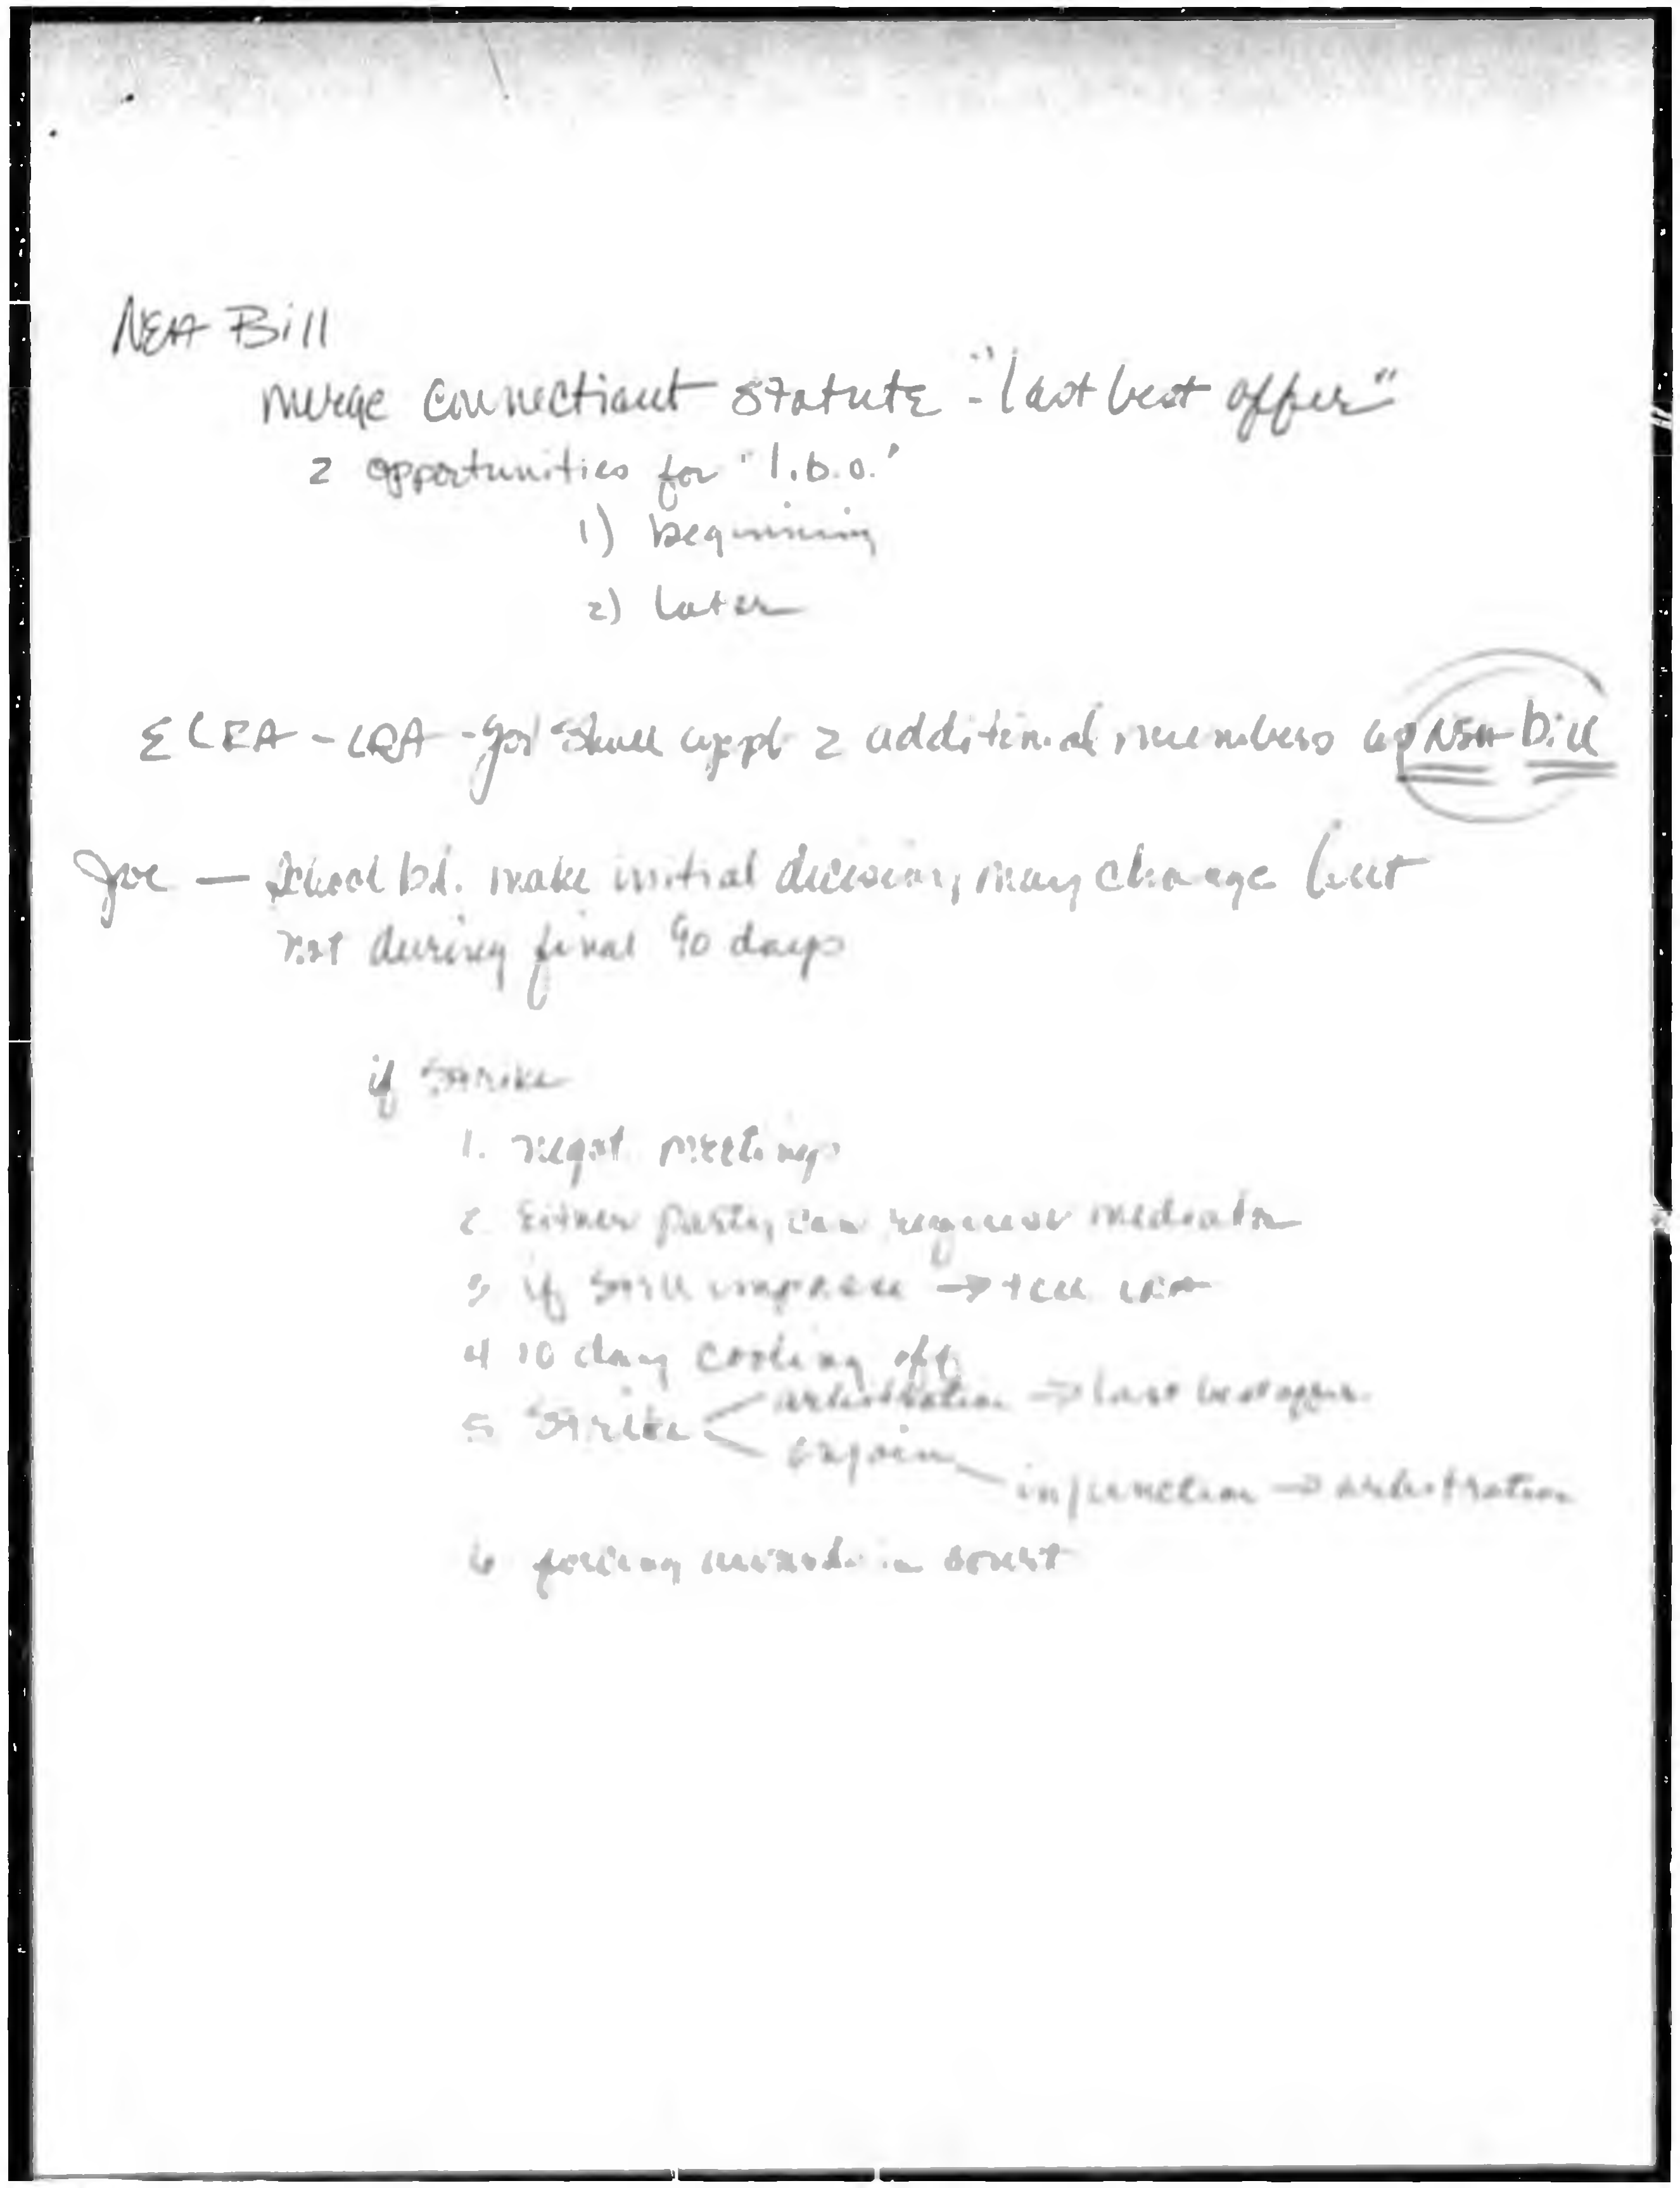 NEA Bill
merge Connecticut statute - "last best offer"
2 opportunities for "l.b.o."
1) beginning
2) later
ELRA - LRA - gov shall appt 2 additional members NEA bill
Joe — School bd. make initial decision, may change but
not during final 90 days
if strike
1. negot meetings
2 Either party can request mediator
3 if still impasse → tell LRA
4 10 day cooling off
5 Strike arbitration → last best offer
enjoin
injunction → arbitration
6 in court